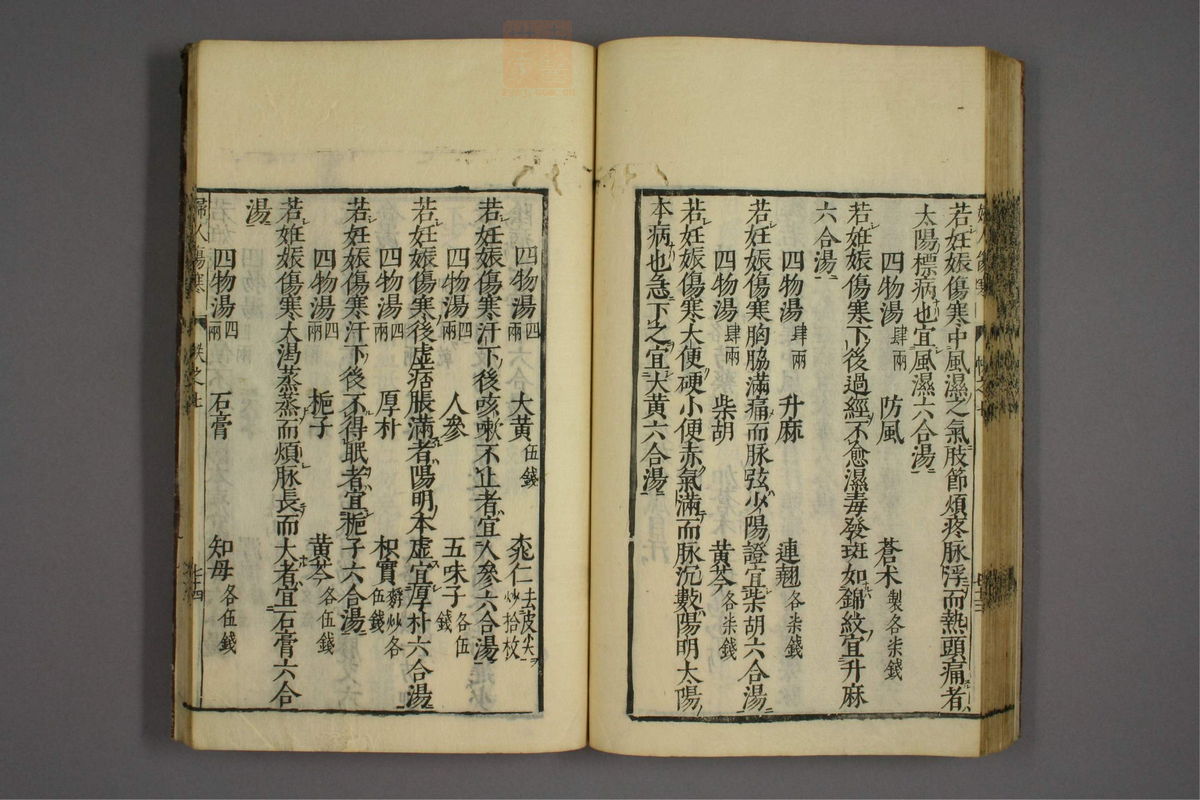 若妊娠傷寒中風濕之氣肢節煩疼脉浮而熱頭痛者
太陽標病也宜風濕六合湯
四物湯肆兩 防風 蒼朮製各柒錢
若妊娠傷寒下後過經不愈濕毒發斑如錦紋宜升麻
六合湯
四物湯肆兩 升麻 連翹各柒錢
若妊娠傷寒胸脇滿痛而脉弦少陽證宜柴胡六合湯
四物湯肆兩 柴胡 黄芩各柒錢
若妊娠傷寒大便硬小便赤氣滿而脉沉數陽明太陽
本病也急下之宜大黄六合湯
四物湯四兩 大黄伍錢 桃仁去皮尖炒拾枚
若妊娠傷寒汗下後咳嗽不止者宜人參六合湯
四物湯四兩 人參 五味子各伍錢
若妊娠傷寒後虚痞脹滿者陽明本虚宜厚朴六合湯
四物湯四兩 厚朴 枳實麸炒各伍錢
若妊娠傷寒汗下後不得眠者宜梔子六合湯
四物湯四兩 梔子 黄芩各伍錢
若妊娠傷寒大渴蒸蒸而煩脉長而大者宜石膏六合
湯
四物湯四兩 石膏 知母各伍錢
婦人傷寒 帙之七 七十四